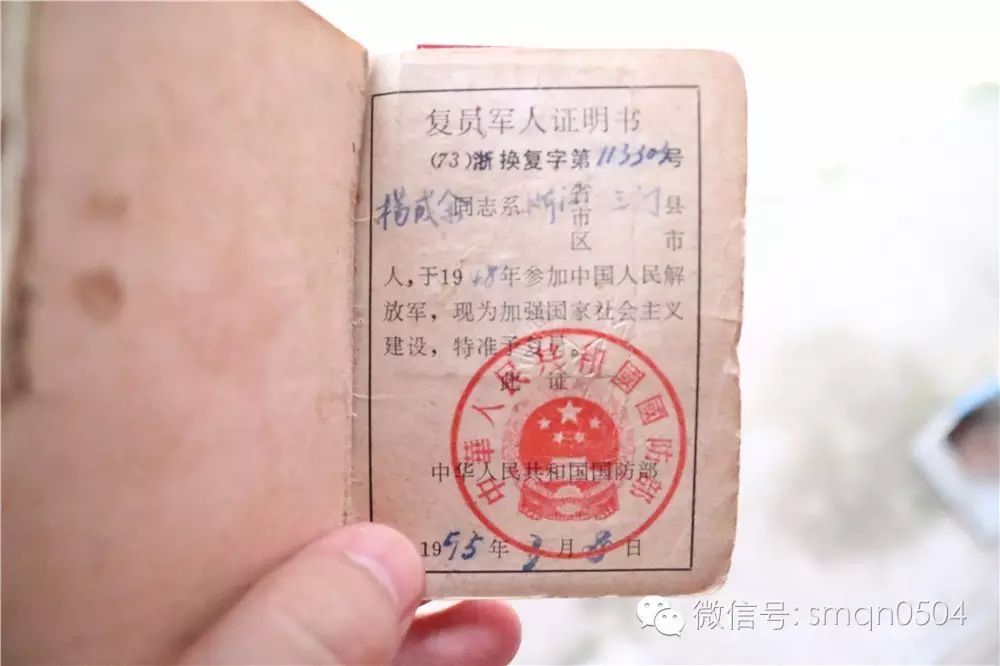 复员军人证明书
(73)浙换复字第113303号
楊咸金同志系浙江省市区三门县市
人,于1948年参加中国人民解
放军,现为加强国家社会主义
建设,特准予复员。
此证
中華人民共和國國防部
中华人民共和国国防部
1955年3月 日
微信号: smqn0504